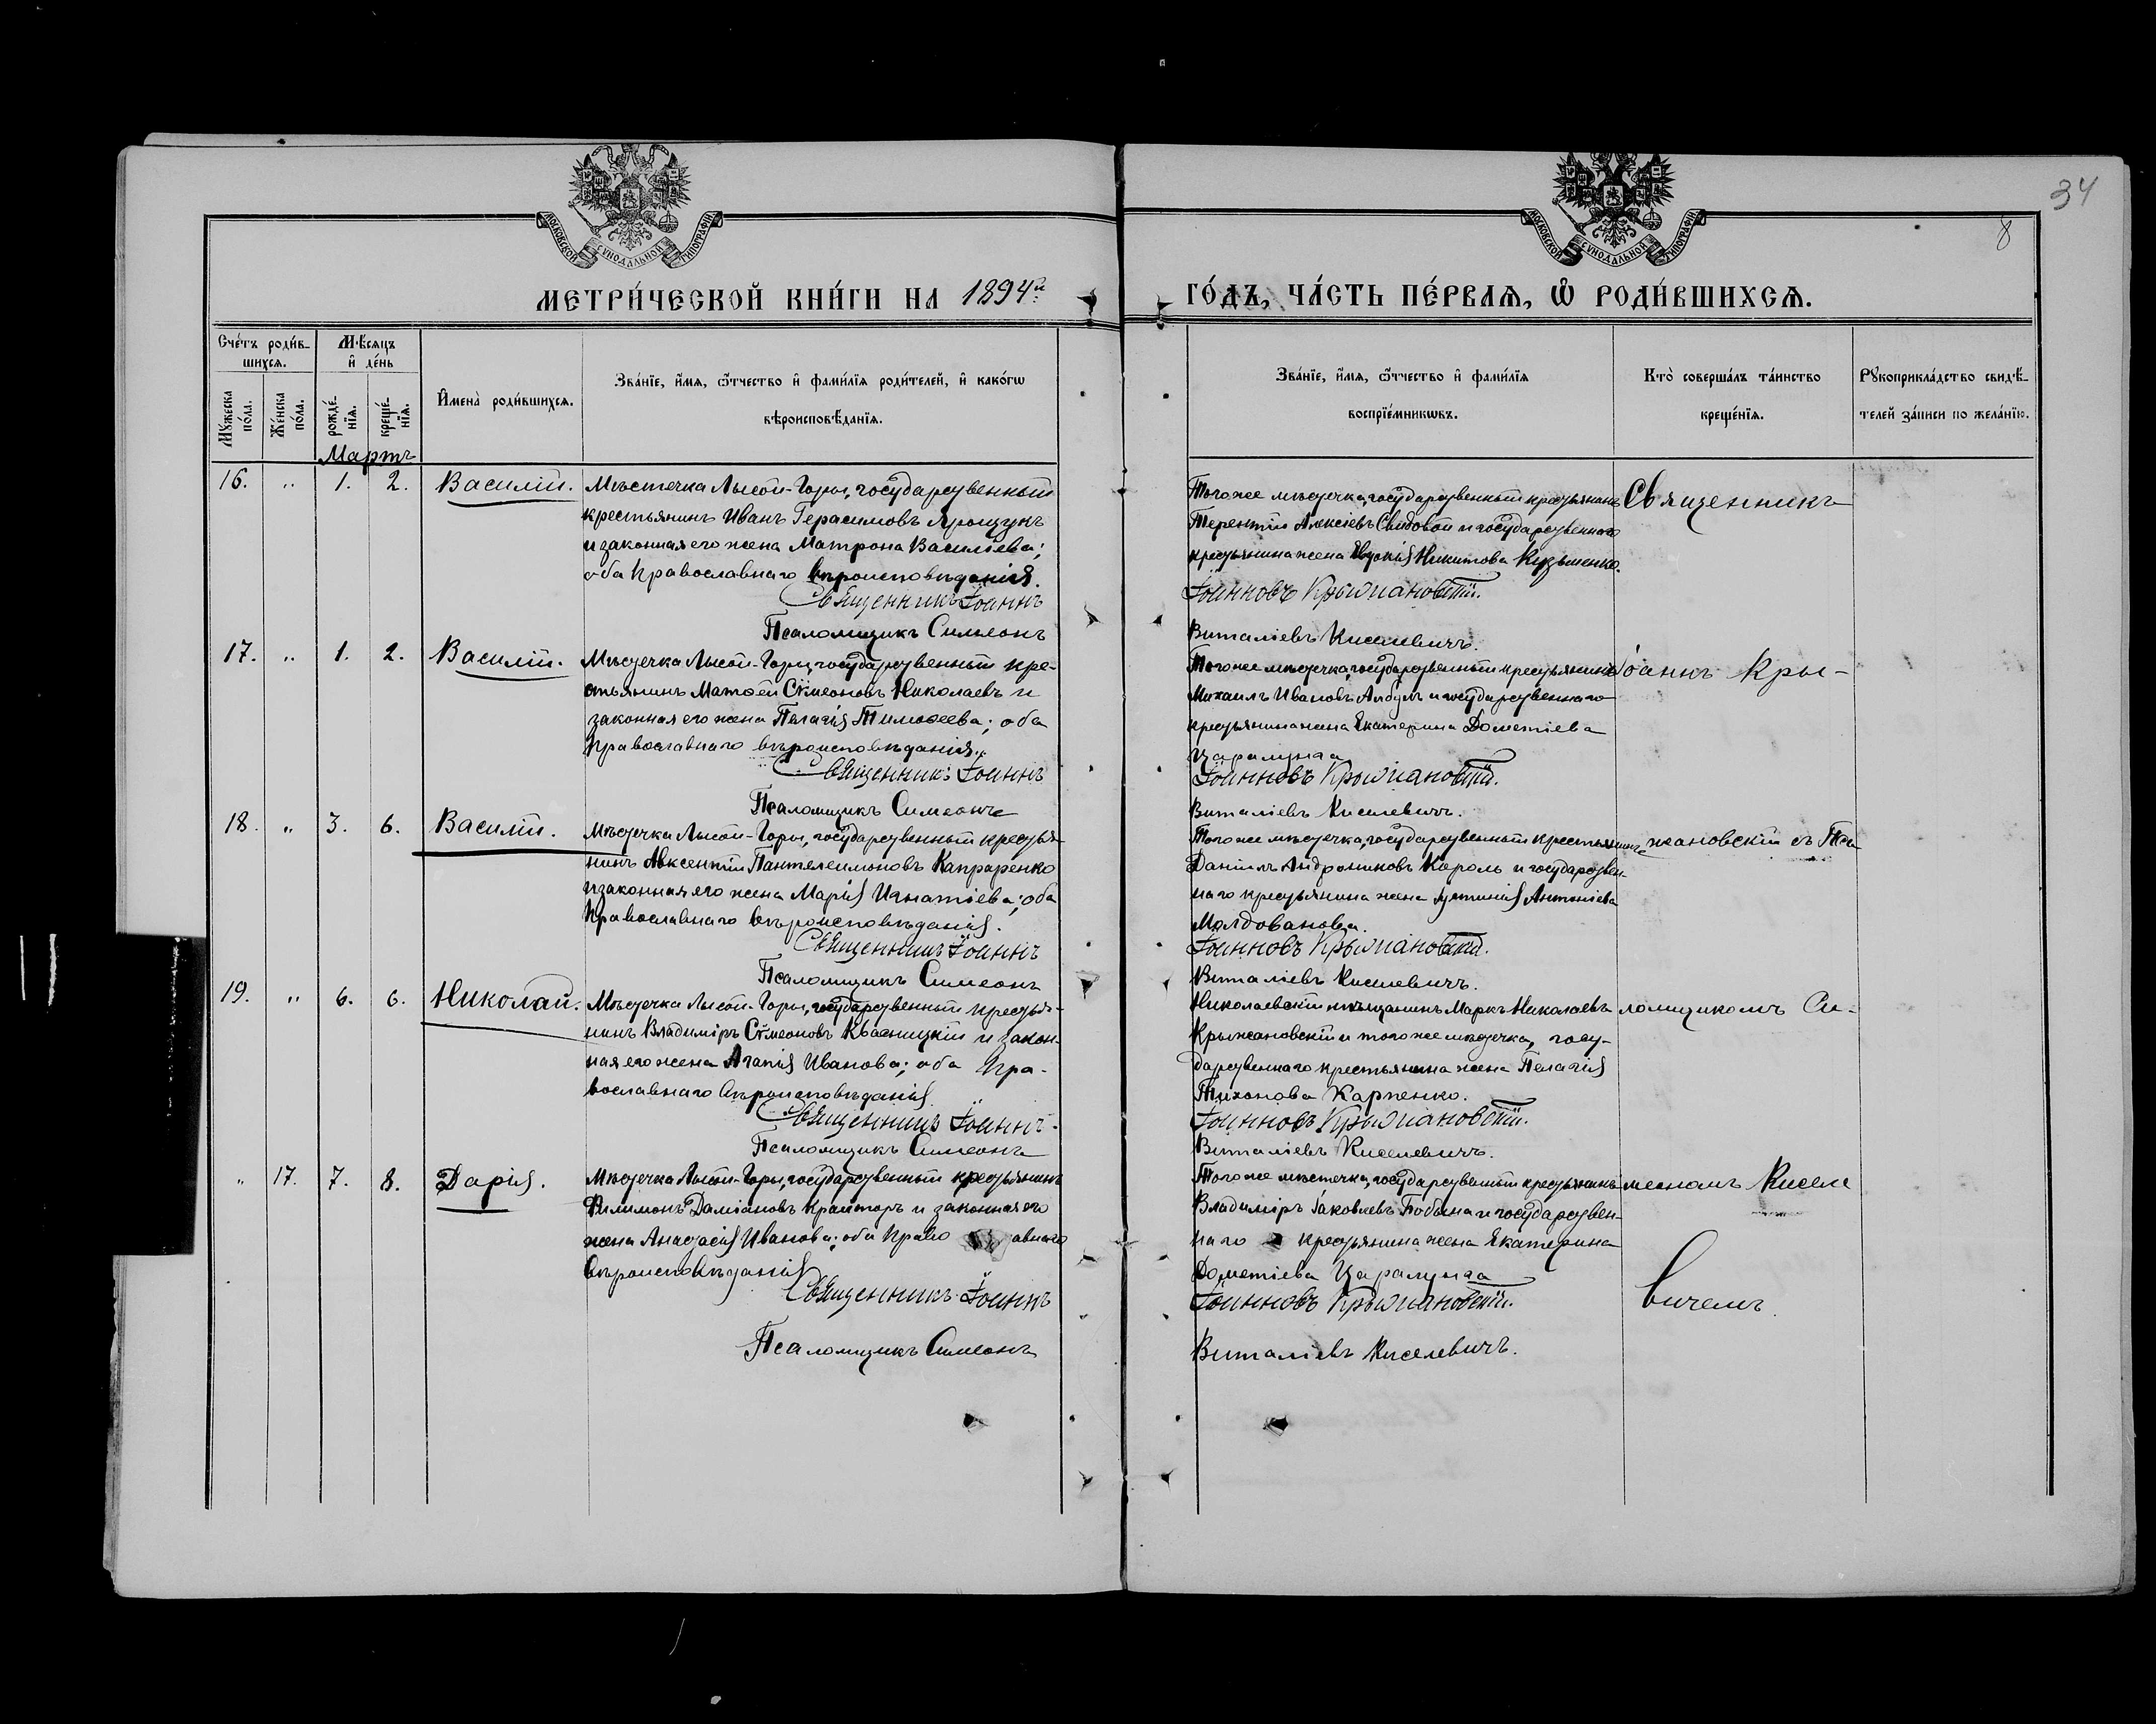 34
8
МОСКОВСКОЙ СУНОДАЛЬНОЙ ТИПОГРАФІИ
МОСКОВСКОЙ СУНОДАЛЬНОЙ ТИПОГРАФІИ
МЕТРИ́ЧЕСКОЙ КНИ́ГИ НА 1894й
ГО́ДЪ, ЧА́СТЬ ПЕ́РВАѦ, Ѡ҆ РОДИ́ВШИХСѦ.
Счетъ роди́в-
шихсѧ.
Мѣ́сяцъ
и҆ де́нь
Мꙋ́жеска по́ла.
Же́нска по́ла.
рожде́-
нїѧ.
креще́-
нїѧ.
И҆мена̀ роди́вшихсѧ.
Зва́нїе, и҆́мѧ, ѻ҆́тчество и҆ фами́лїѧ роди́телей, и҆ како́гѡ
вѣроисповѣ́данїѧ.
Зва́нїе, и҆́мѧ, ѻ҆́тчество и҆ фами́лїѧ
воспрїе́мникѡвъ.
Кто̀ соверша́лъ та́инство
креще́нїѧ.
Рꙋкоприкла́дство свидѣ́-
телей за́писи по жела́нїю.
Мартъ
16. " 1. 2. Василій.
Мѣстечка Лысой-Горы, государственный
крестьянинъ Иванъ Герасимовъ Ярощукъ
и законная его жена Матрона Васильева;
оба православнаго вѣроисповѣданія.
Священникъ Іоаннъ
Псаломщикъ Симеонъ
Того же мѣстечка, государственный крестьянинъ
Терентій Алексіевъ Свидовой и государственнаго
крестьянина жена Евдокія Никитова Кузьменко.
Іоанновъ Крыжановскій.
Виталіевъ Киселевичъ.
Священникъ
17. " 1. 2. Василій.
Мѣстечка Лысой-Горы, государственный кре-
стьянинъ Матѳей Сѵмеоновъ Николаевъ и
законная его жена Пелагія Тимоѳеева; оба
православнаго вѣроисповѣданія.
Священникъ Іоаннъ
Псаломщикъ Симеонъ
Того же мѣстечка, государственный крестьянинъ
Михаилъ Ивановъ Албулъ и государственнаго
крестьянина жена Екатерина Дометіева
Царалунга
Іоанновъ Крыжановскій.
Виталіевъ Киселевичъ.
Іоаннъ Кры-
18. " 3. 6. Василій.
Мѣстечка Лысой-Горы, государственный крестья-
нинъ Авксентій Пантелеимоновъ Капраренко
и законная его жена Марія Игнатіева; оба
православнаго вѣроисповѣданія.
Священникъ Іоаннъ
Псаломщикъ Симеонъ
Того же мѣстечка, государственный крестьянинъ
Даніилъ Андрониковъ Король и государствен-
наго крестьянина жена Антоніева
Молдованова.
Іоанновъ Крыжановскій.
Виталіевъ Киселевичъ.
жановскій съ Пса-
19. " 6. 6. Николай.
Мѣстечка Лысой-Горы, государственный крестья-
нинъ Владиміръ Сѵмеоновъ Квасницкій и закон-
ная его жена Агапія Иванова; оба пра-
вославнаго вѣроисповѣданія.
Священникъ Іоаннъ
Псаломщикъ Симеонъ
Николаевскій мѣщанинъ Маркъ Николаевъ
Крыжановскій и того же мѣстечка, госу-
дарственнаго крестьянина жена Пелагія
Тихонова Карпенко.
Іоанновъ Крыжановскій.
Виталіевъ Киселевичъ.
ломщикомъ Си-
" 17. 7. 8. Дарія.
Мѣстечка Лысой-Горы, государственный крестьянинъ
Филимонъ Даміановъ Крайторъ и законная его
жена Анастасія Иванова; оба право авнаго
вѣроисповѣданія
Священникъ Іоаннъ
Псаломщикъ Симеонъ
Того же мѣстечка, государственный крестьянинъ
Владиміръ Іаковлевъ Побына и государствен-
наго крестьянина жена Екатерина
Дометіева Царалунга
Іоанновъ Крыжановскій.
Виталіевъ Киселевичъ.
меономъ Кисле
вичемъ